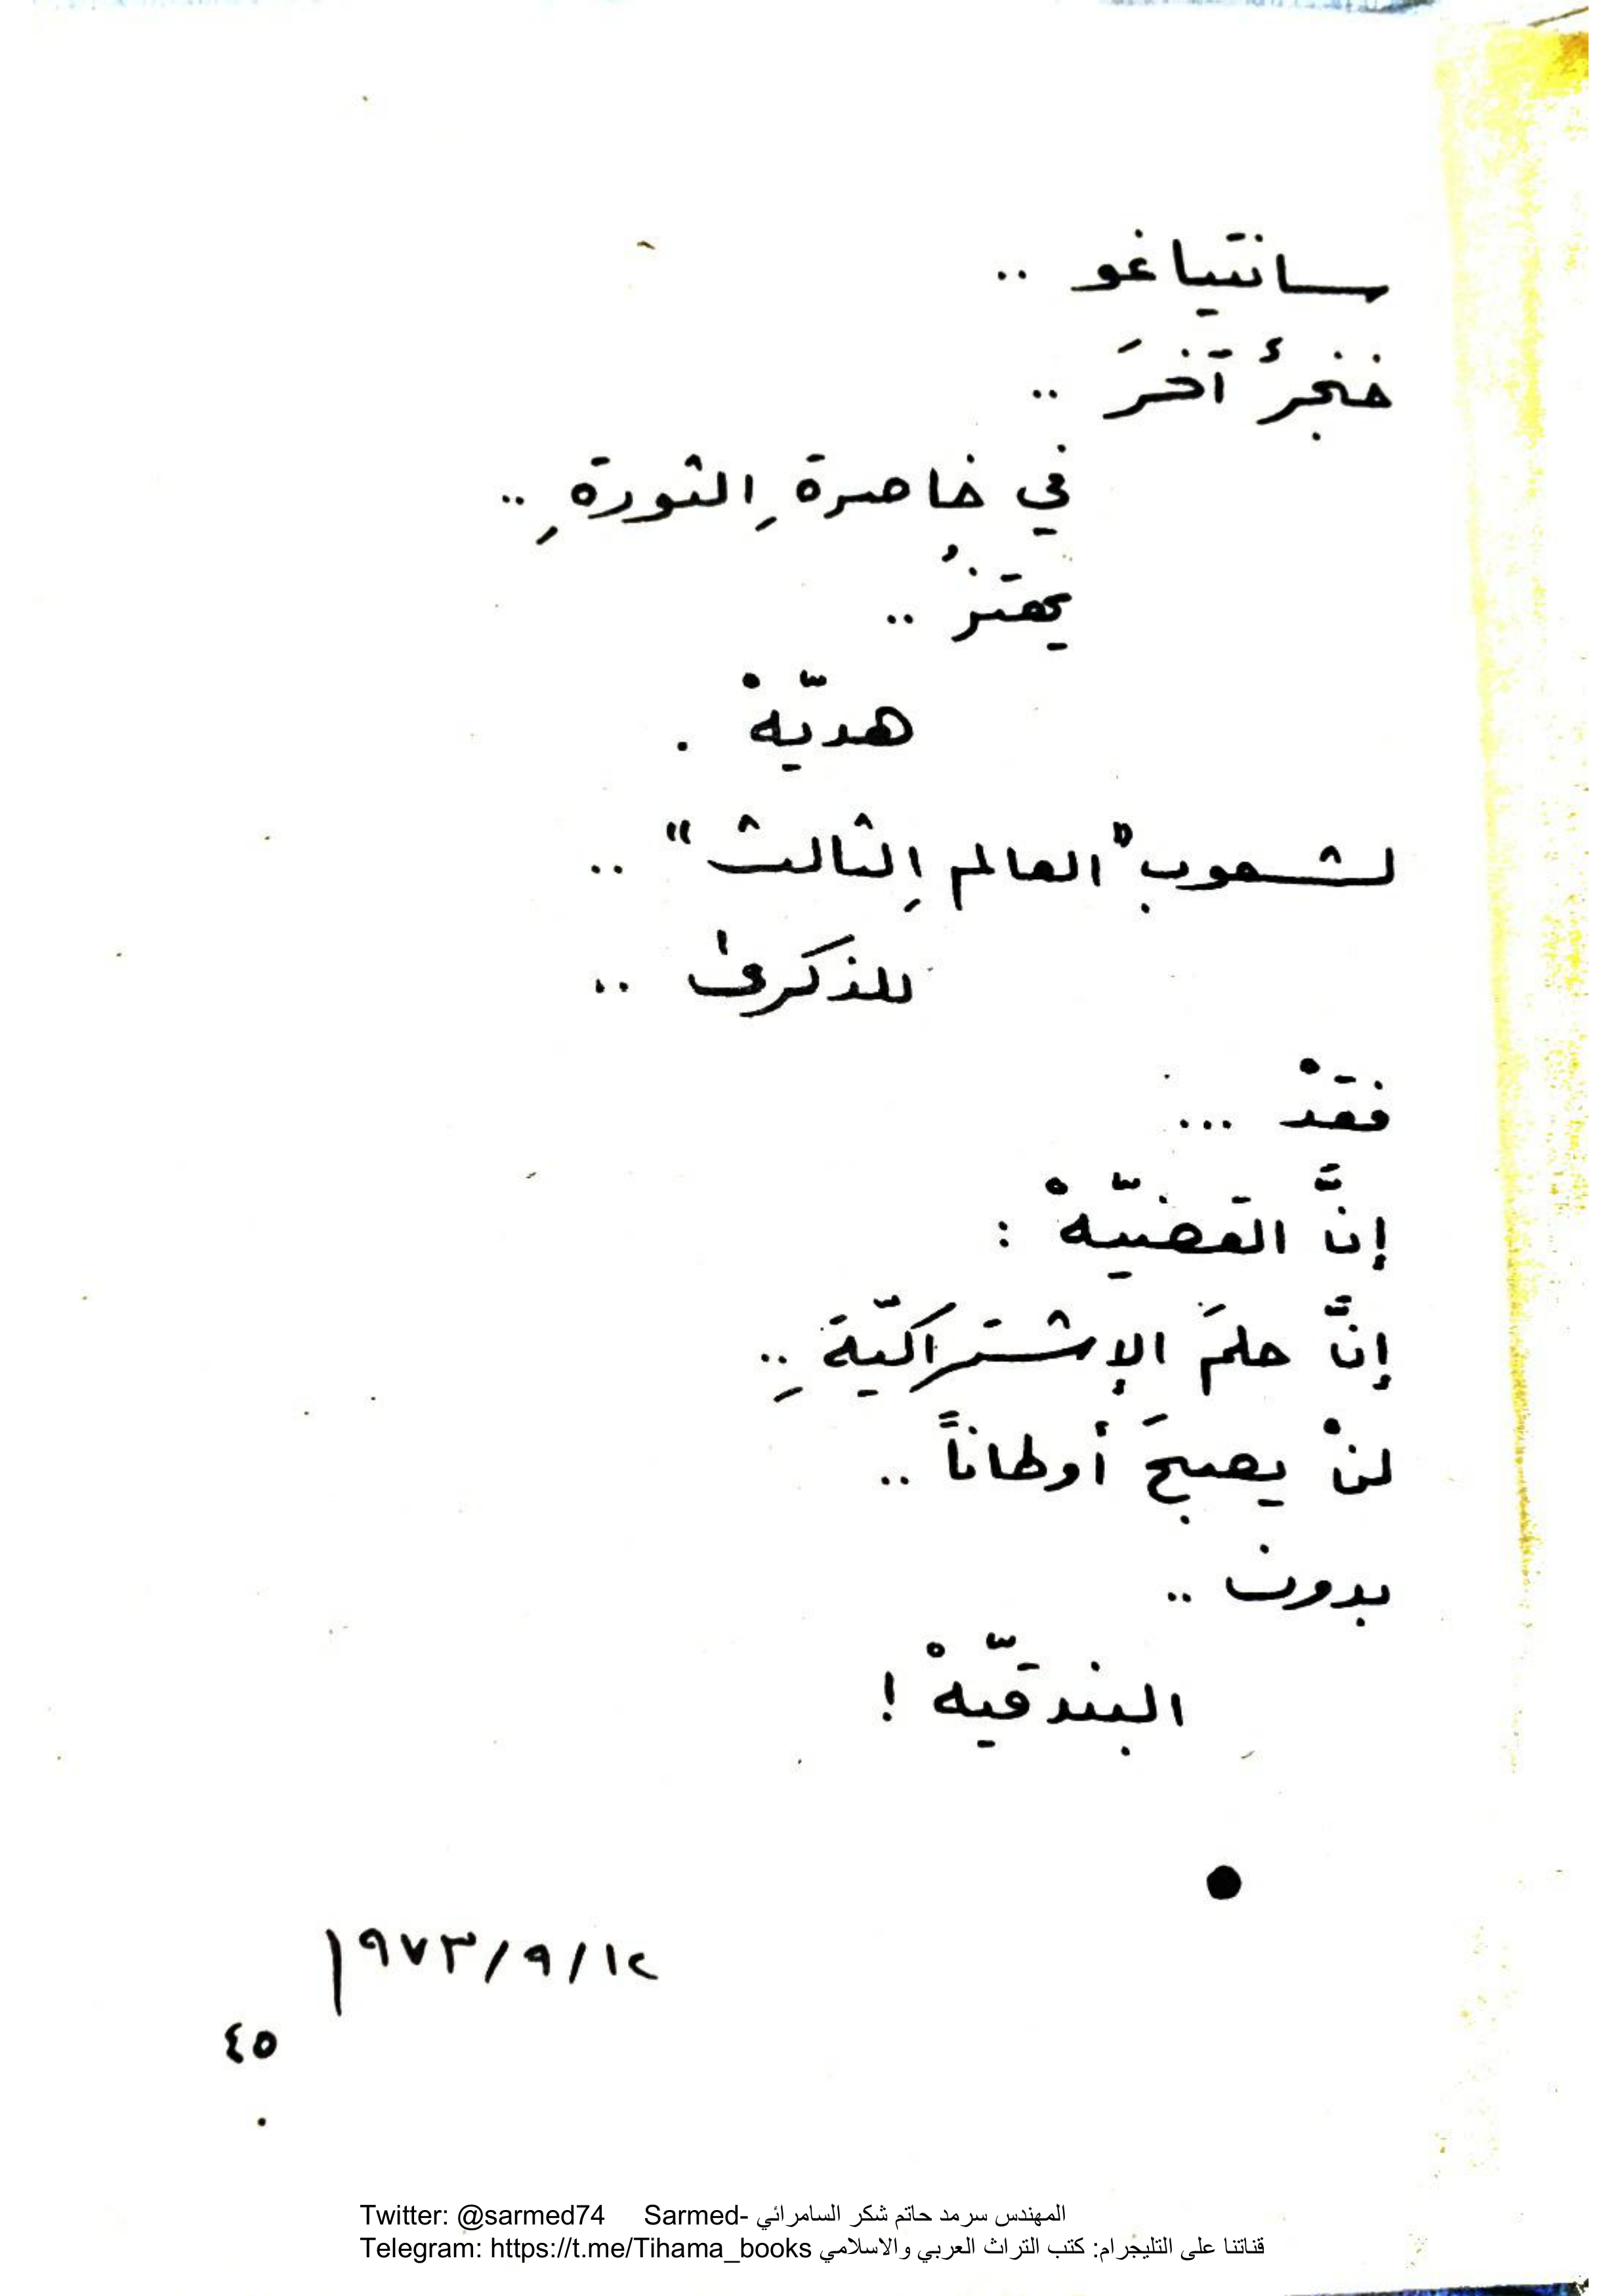 سانتياغو ..
خنجرٌ آخرَ ..
في خاصرةِ الثورةِ ..
يهتزُ ..
هديّهْ .
لشعوب "العالمِ الثالث" ..
للذكرىٰ ..
فقدْ ...
إنَّ القضيّهْ :
إنَّ حلمَ الإشتراكيّةِ ..
لنْ يصبحَ أوطاناً ..
بدون ..
البندقيّهْ !
●
١٩٧٣/٩/١٢
٤٥
Twitter: @sarmed74 Sarmed- المهندس سرمد حاتم شكر السامرائي
Telegram: https://t.me/Tihama_books قناتنا على التليجرام: كتب التراث العربي والاسلامي